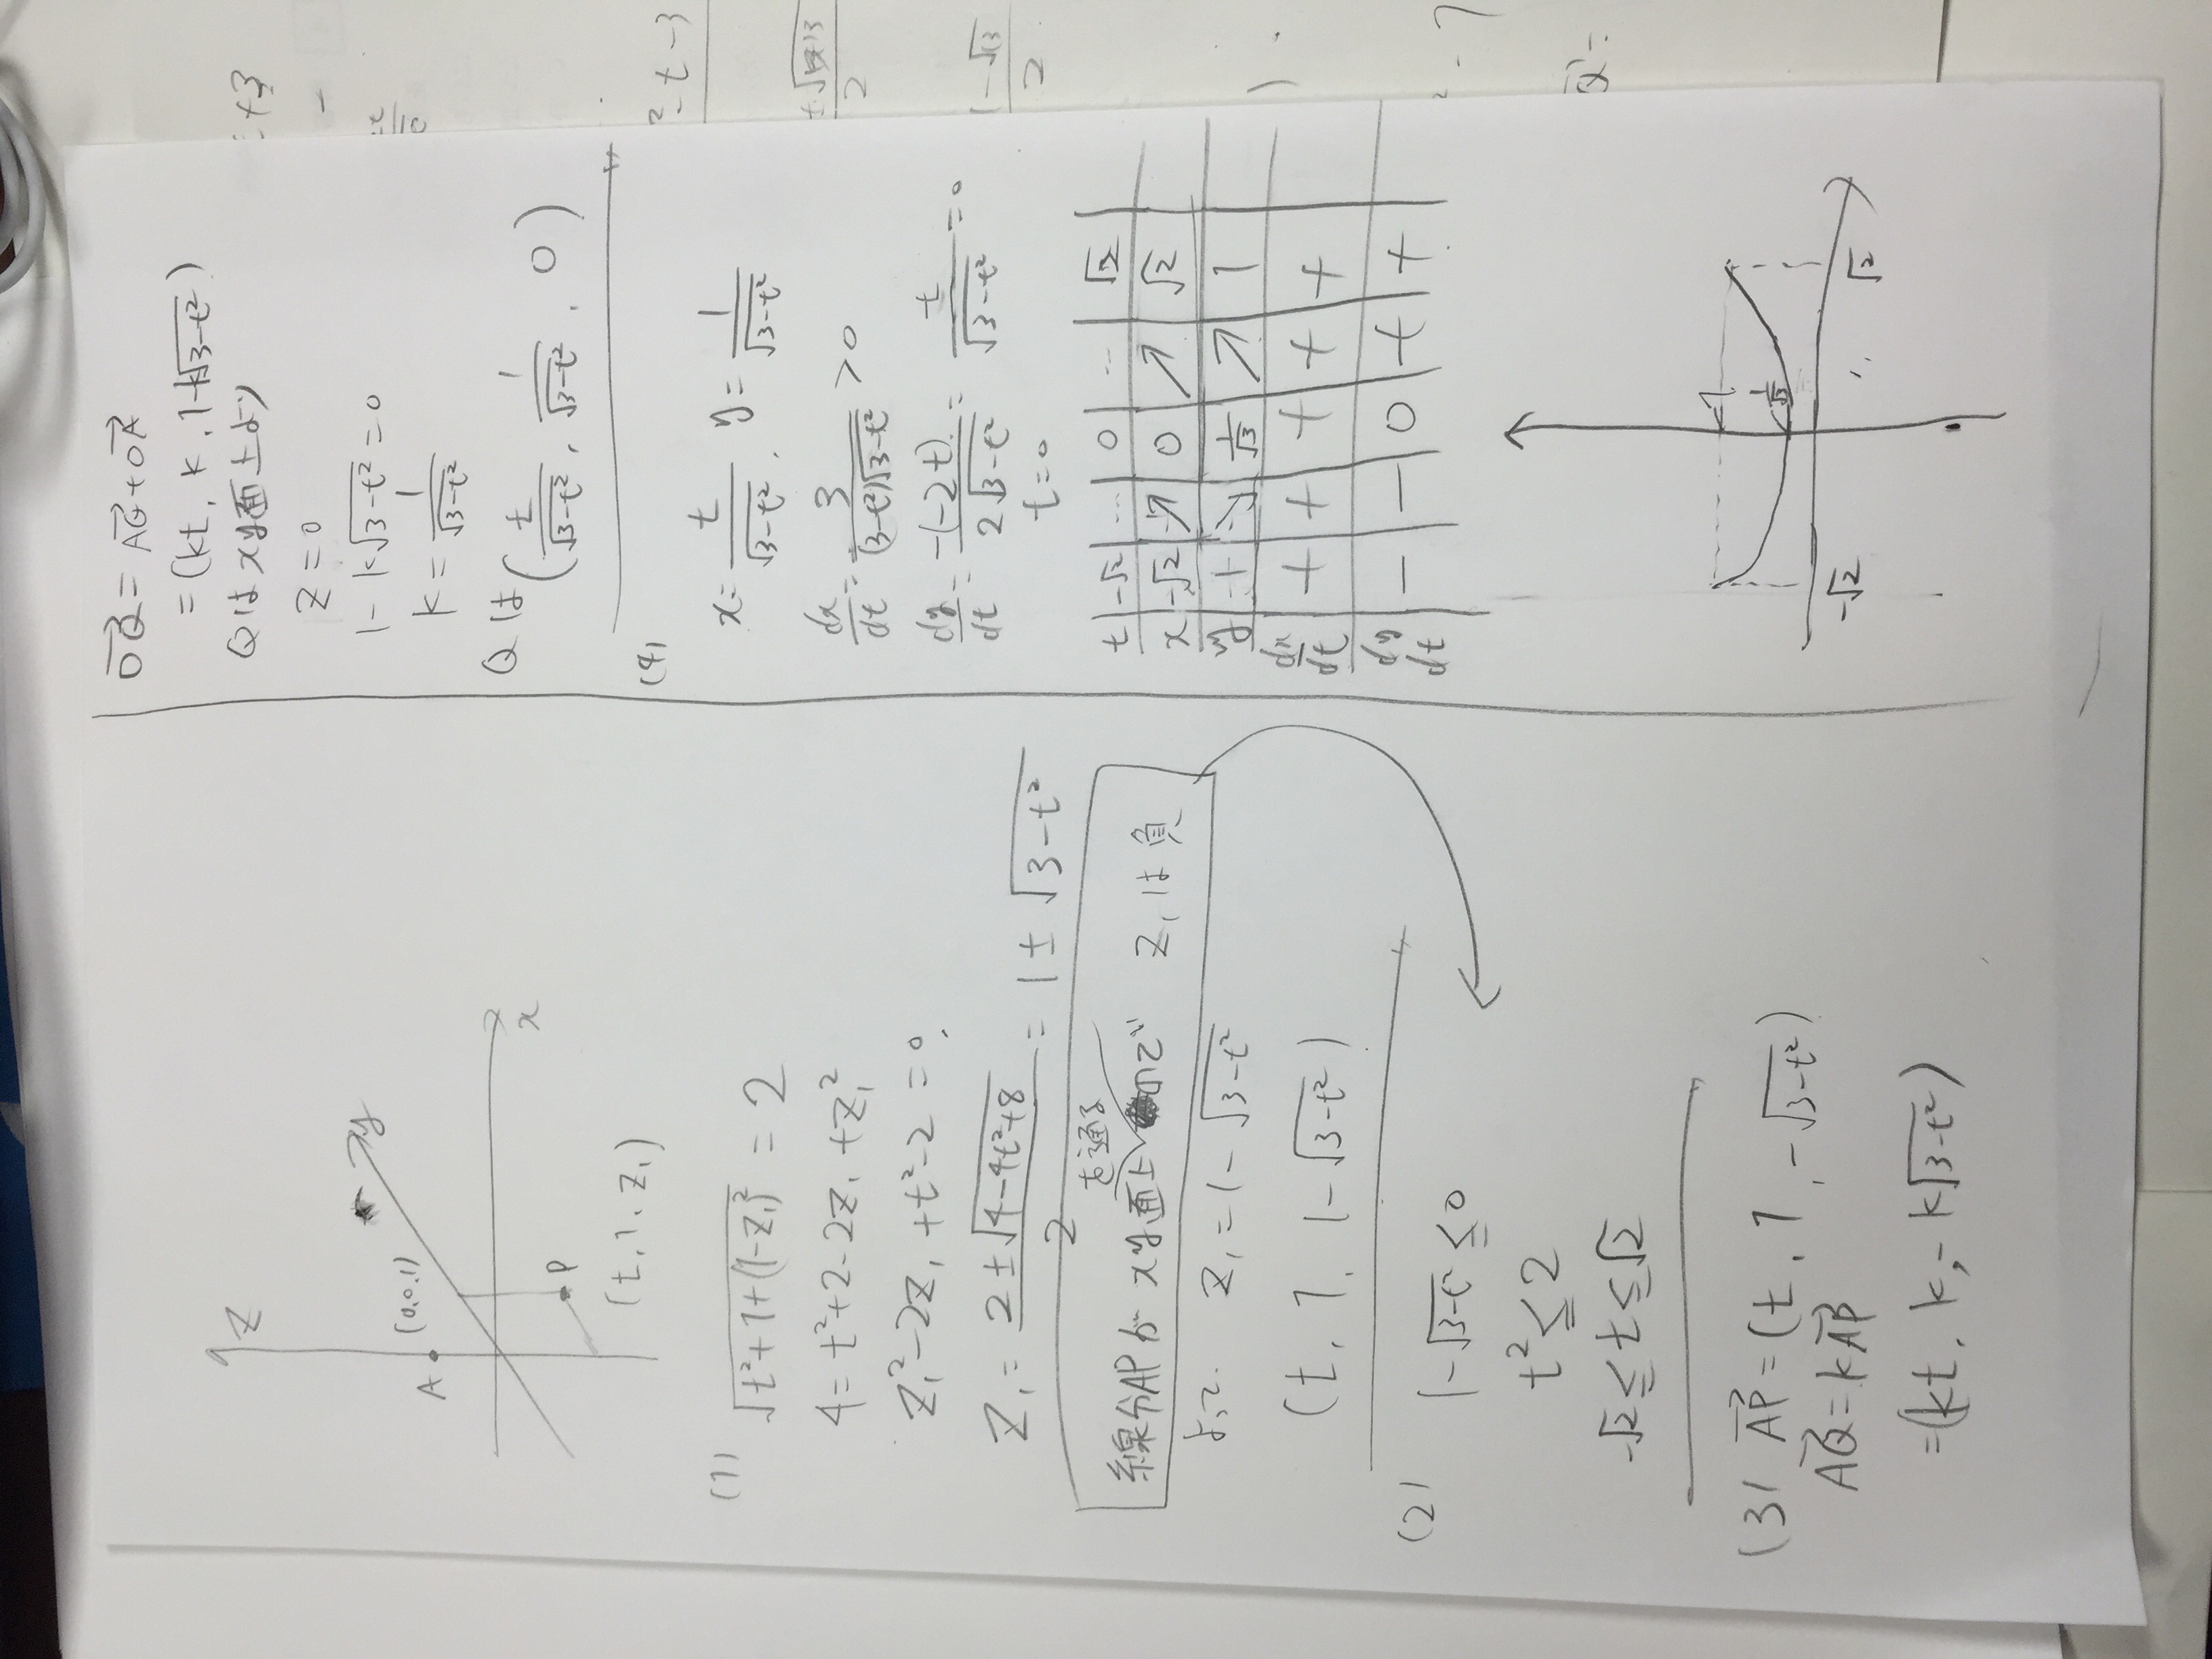 Z
y
A
(0,0,1)
x
P
(t, 1, z₁)
(1) √(t²+1+(1-z₁)²) = 2
4 = t²+2-2z₁+z₁²
z₁²-2z₁+t²-2=0.
z₁ = (2±√(4-4t²+8))/2 = 1±√(3-t²)
を通る
線分APが xy面上 ので z₁は負
よって z₁ = 1-√(3-t²)
(t, 1, 1-√(3-t²))
(2) 1-√(3-t²) ≦ 0
t² ≦ 2
-√2 ≦ t ≦ √2
(3) AP = (t, 1, -√(3-t²))
AQ = kAP
=(kt, k, -k√(3-t²))
OQ = AQ+OA
=(kt, k, 1-k√(3-t²))
Qはxy面上より
z=0
1-k√(3-t²)=0
k=1/√(3-t²)
Qは(t/√(3-t²), 1/√(3-t²), 0)
(4)
x=t/√(3-t²), y=1/√(3-t²)
dx/dt = 3/((3-t²)√(3-t²)) > 0
dy/dt = -(-2t)/(2√(3-t²)) = t/√(3-t²) = 0
t=0
t -√2 … 0 … √2
x -√2 ↗ 0 ↗ √2
y 1 ↘ 1/√3 ↗ 1
dx/dt + + + + +
dy/dt - - 0 + +
1
1/√3
-√2 √2